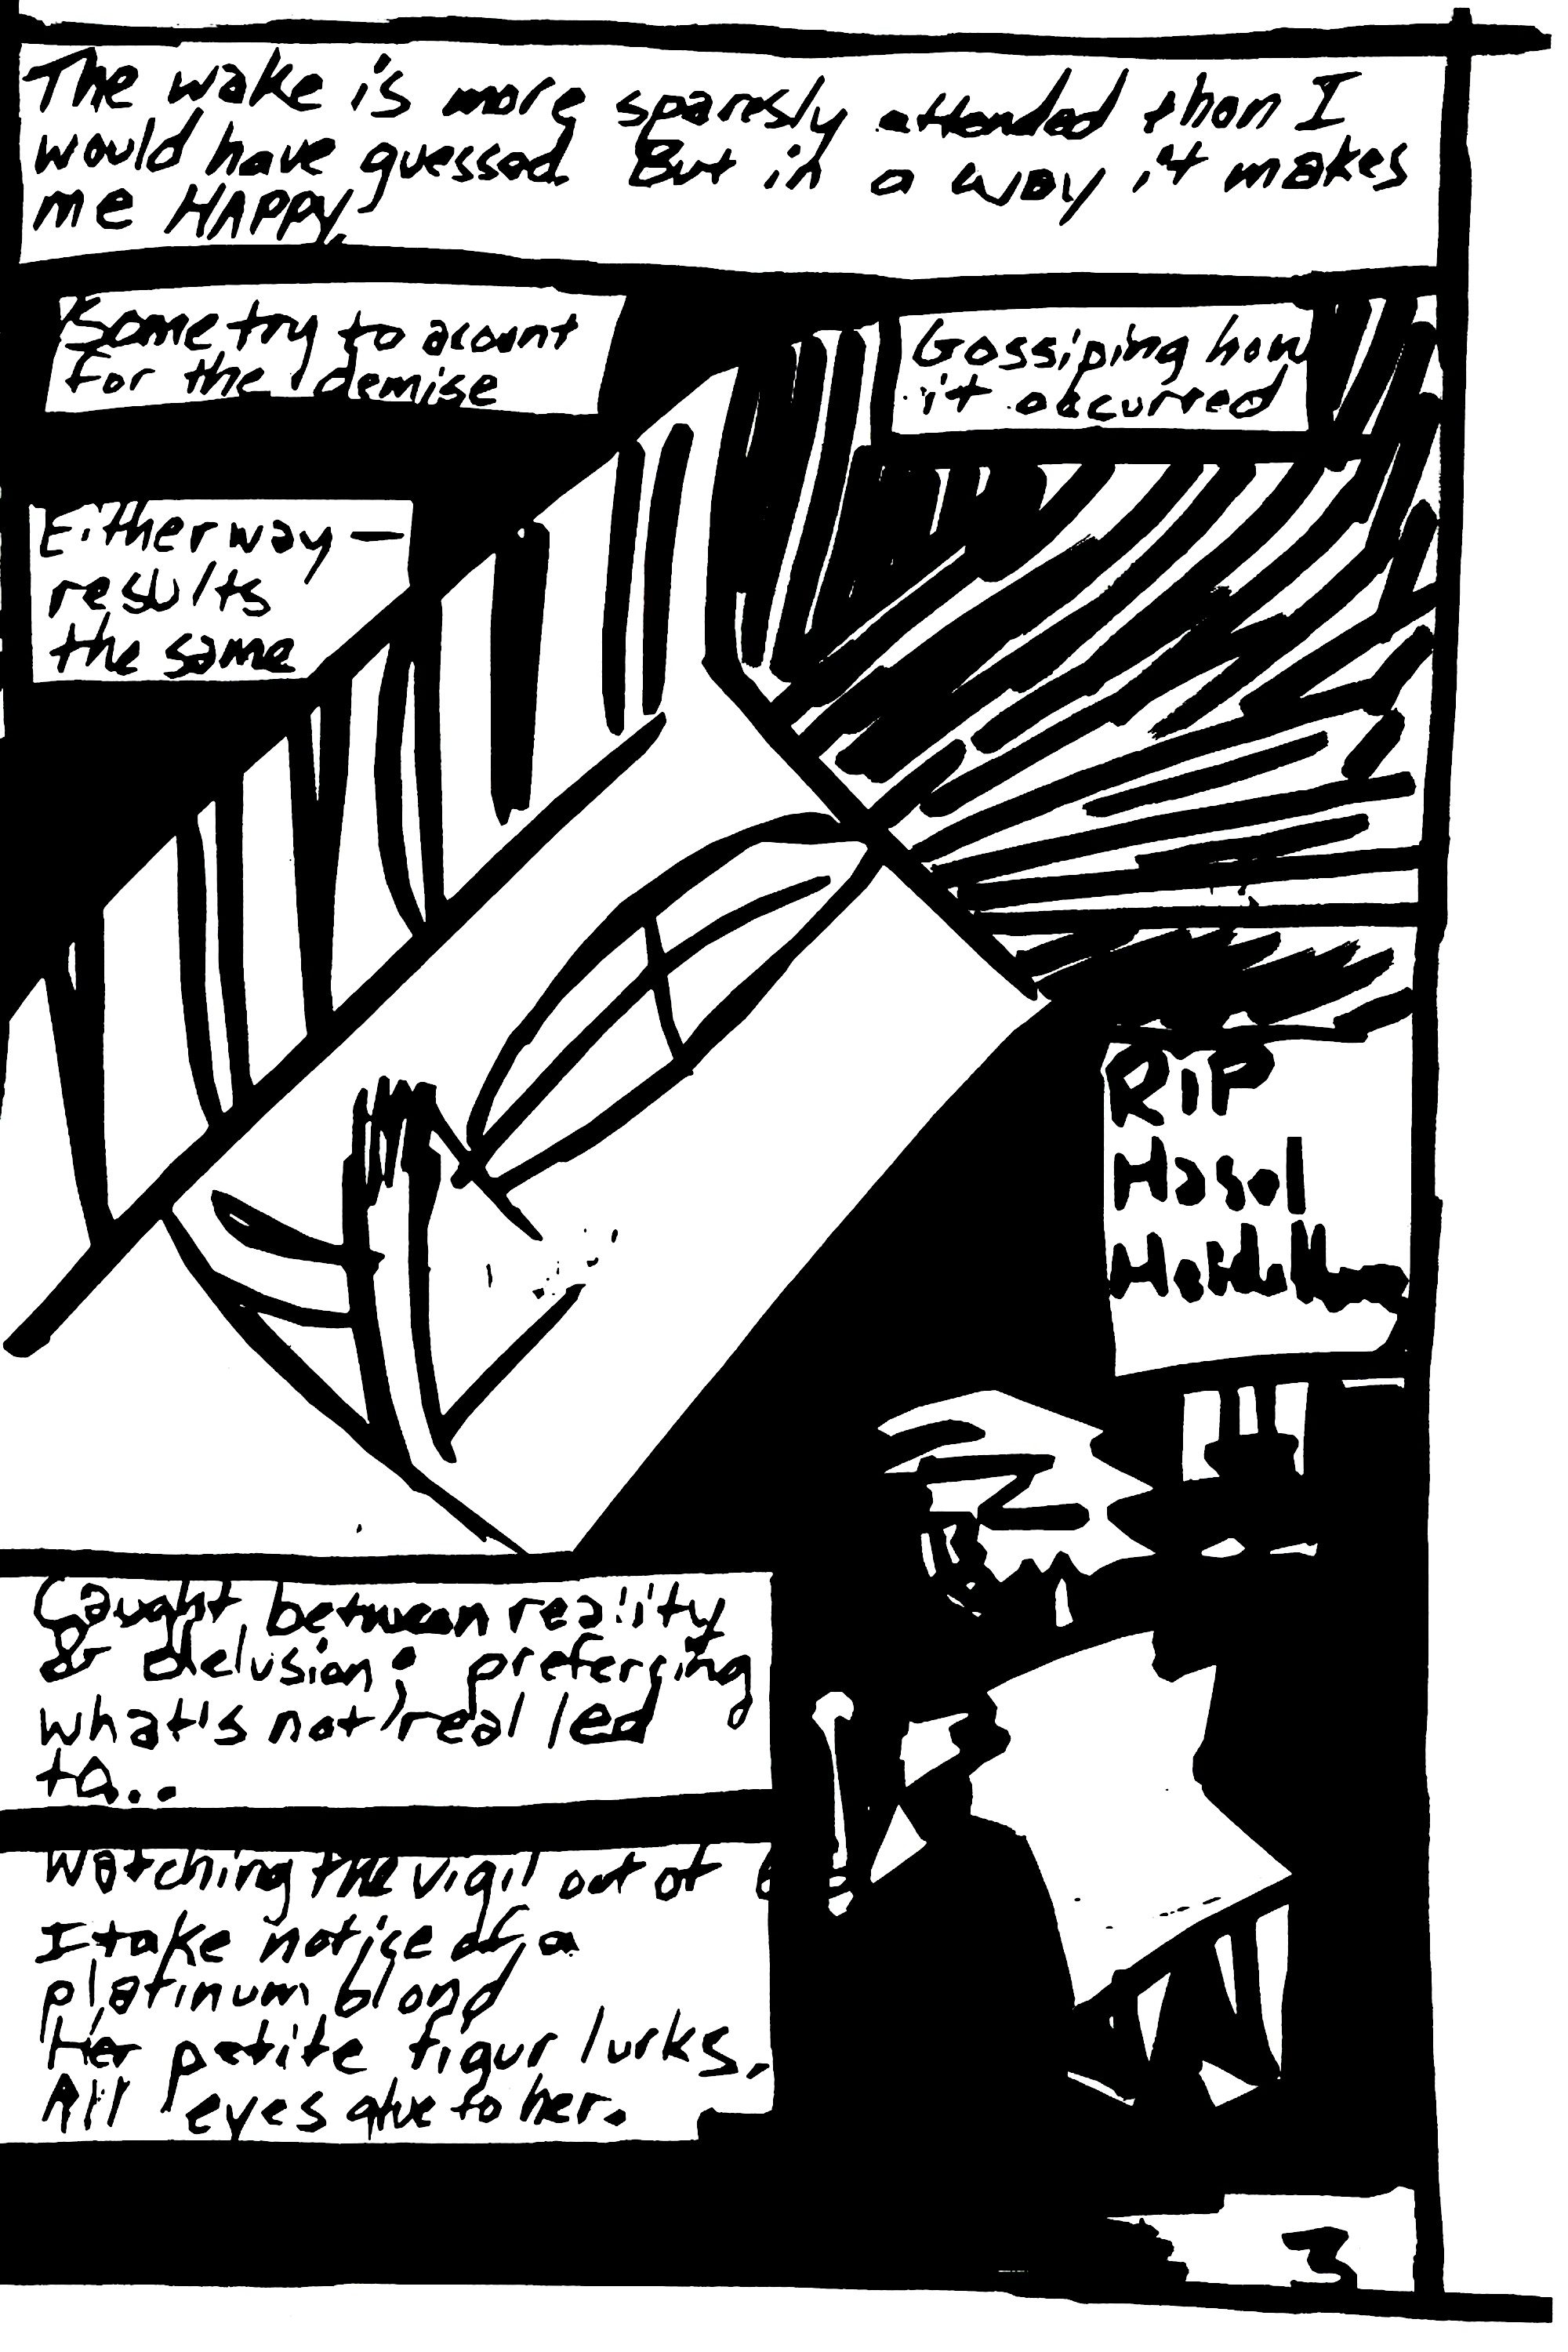 The wake is more sparesly attended than I
would have guessed. But in a way it makes
me HAPPY.
Some try to acount
for the demise
Gossiping how
it occurred
Eitherway—
results
the same
RIP
Hazel
Caught between reality
& delusion; preferring
what's not real led
to..
Watching the vigil out of
I take notise of a
platinum blond
Her petite figur lurks,
All eyes glue to her.
3